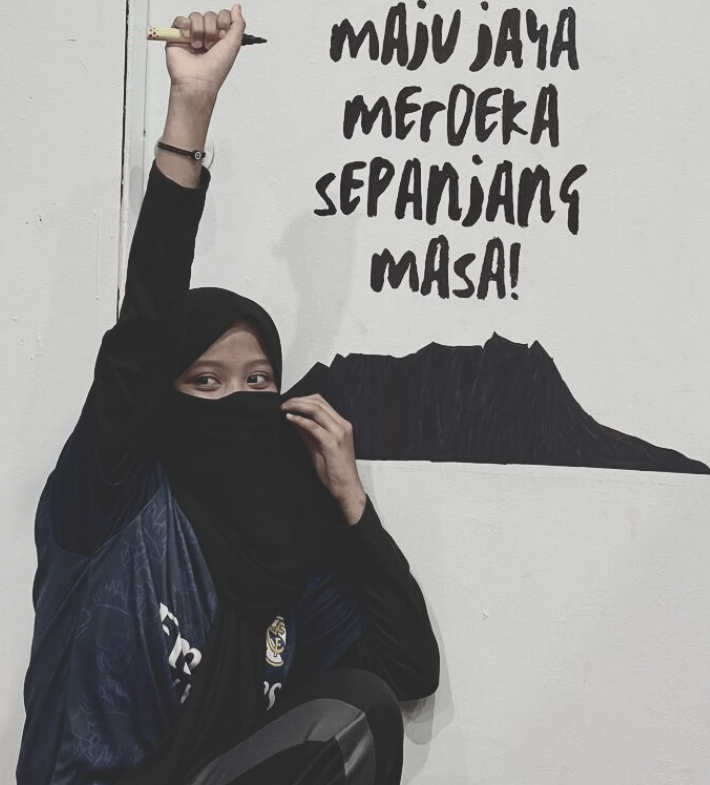 MAJU JAYA
MERDEKA
SEPANJANG
MASA!